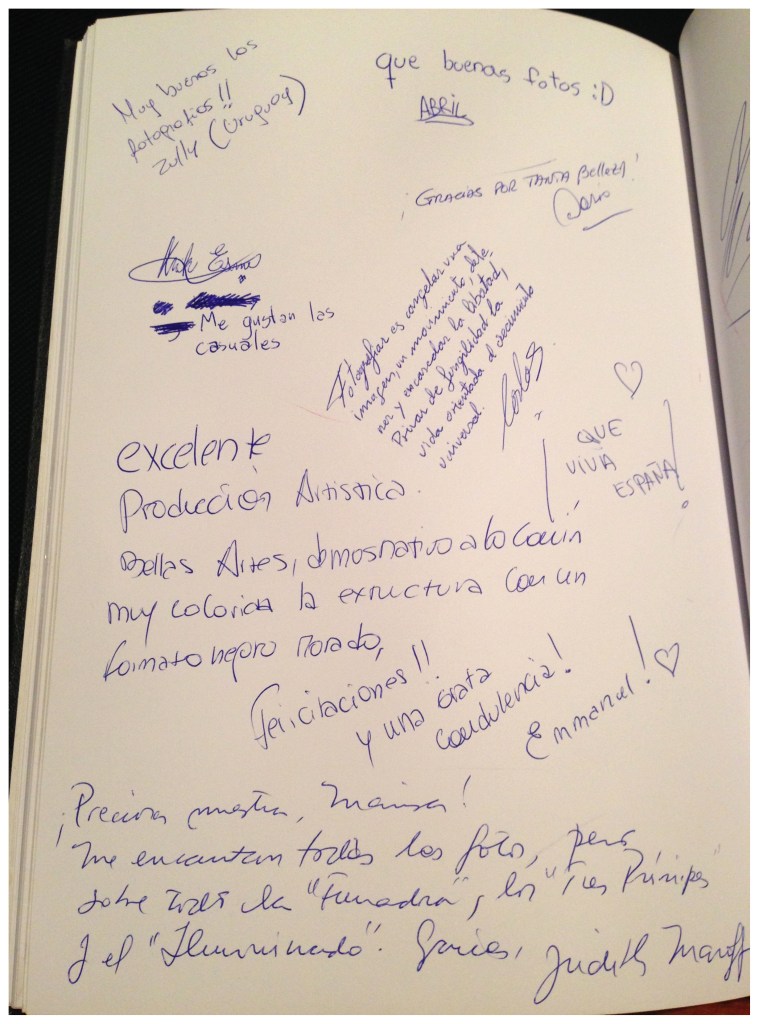 Muy buenas las
fotografias!!
Zully (Uruguay)
que buenas fotos :D
ABRIL
¡GRACIAS POR TANTA BELLEZA!
Me gustan las
casuales
Fotografiar es congelar una
imagen, un movimiento, dete
ner y encarcelar la libertad,
Privar de fragilidad la
vida orientada al
universal.
Carlos
¡QUE
VIVA
ESPAÑA!
excelente
Producción Artistica.
Bellas Artes, a lo
muy colorida la extructura con un
formato negro morado,
Felicitaciones!!
y una grata
condulencia!
Emmanuel!
¡Preciosa muestra, Marisa!
Me encantan todas las fotos, pero,
sobre todo la "Fumadora", los "Tres Príncipes"
y el "Iluminado". Gracias, Judith